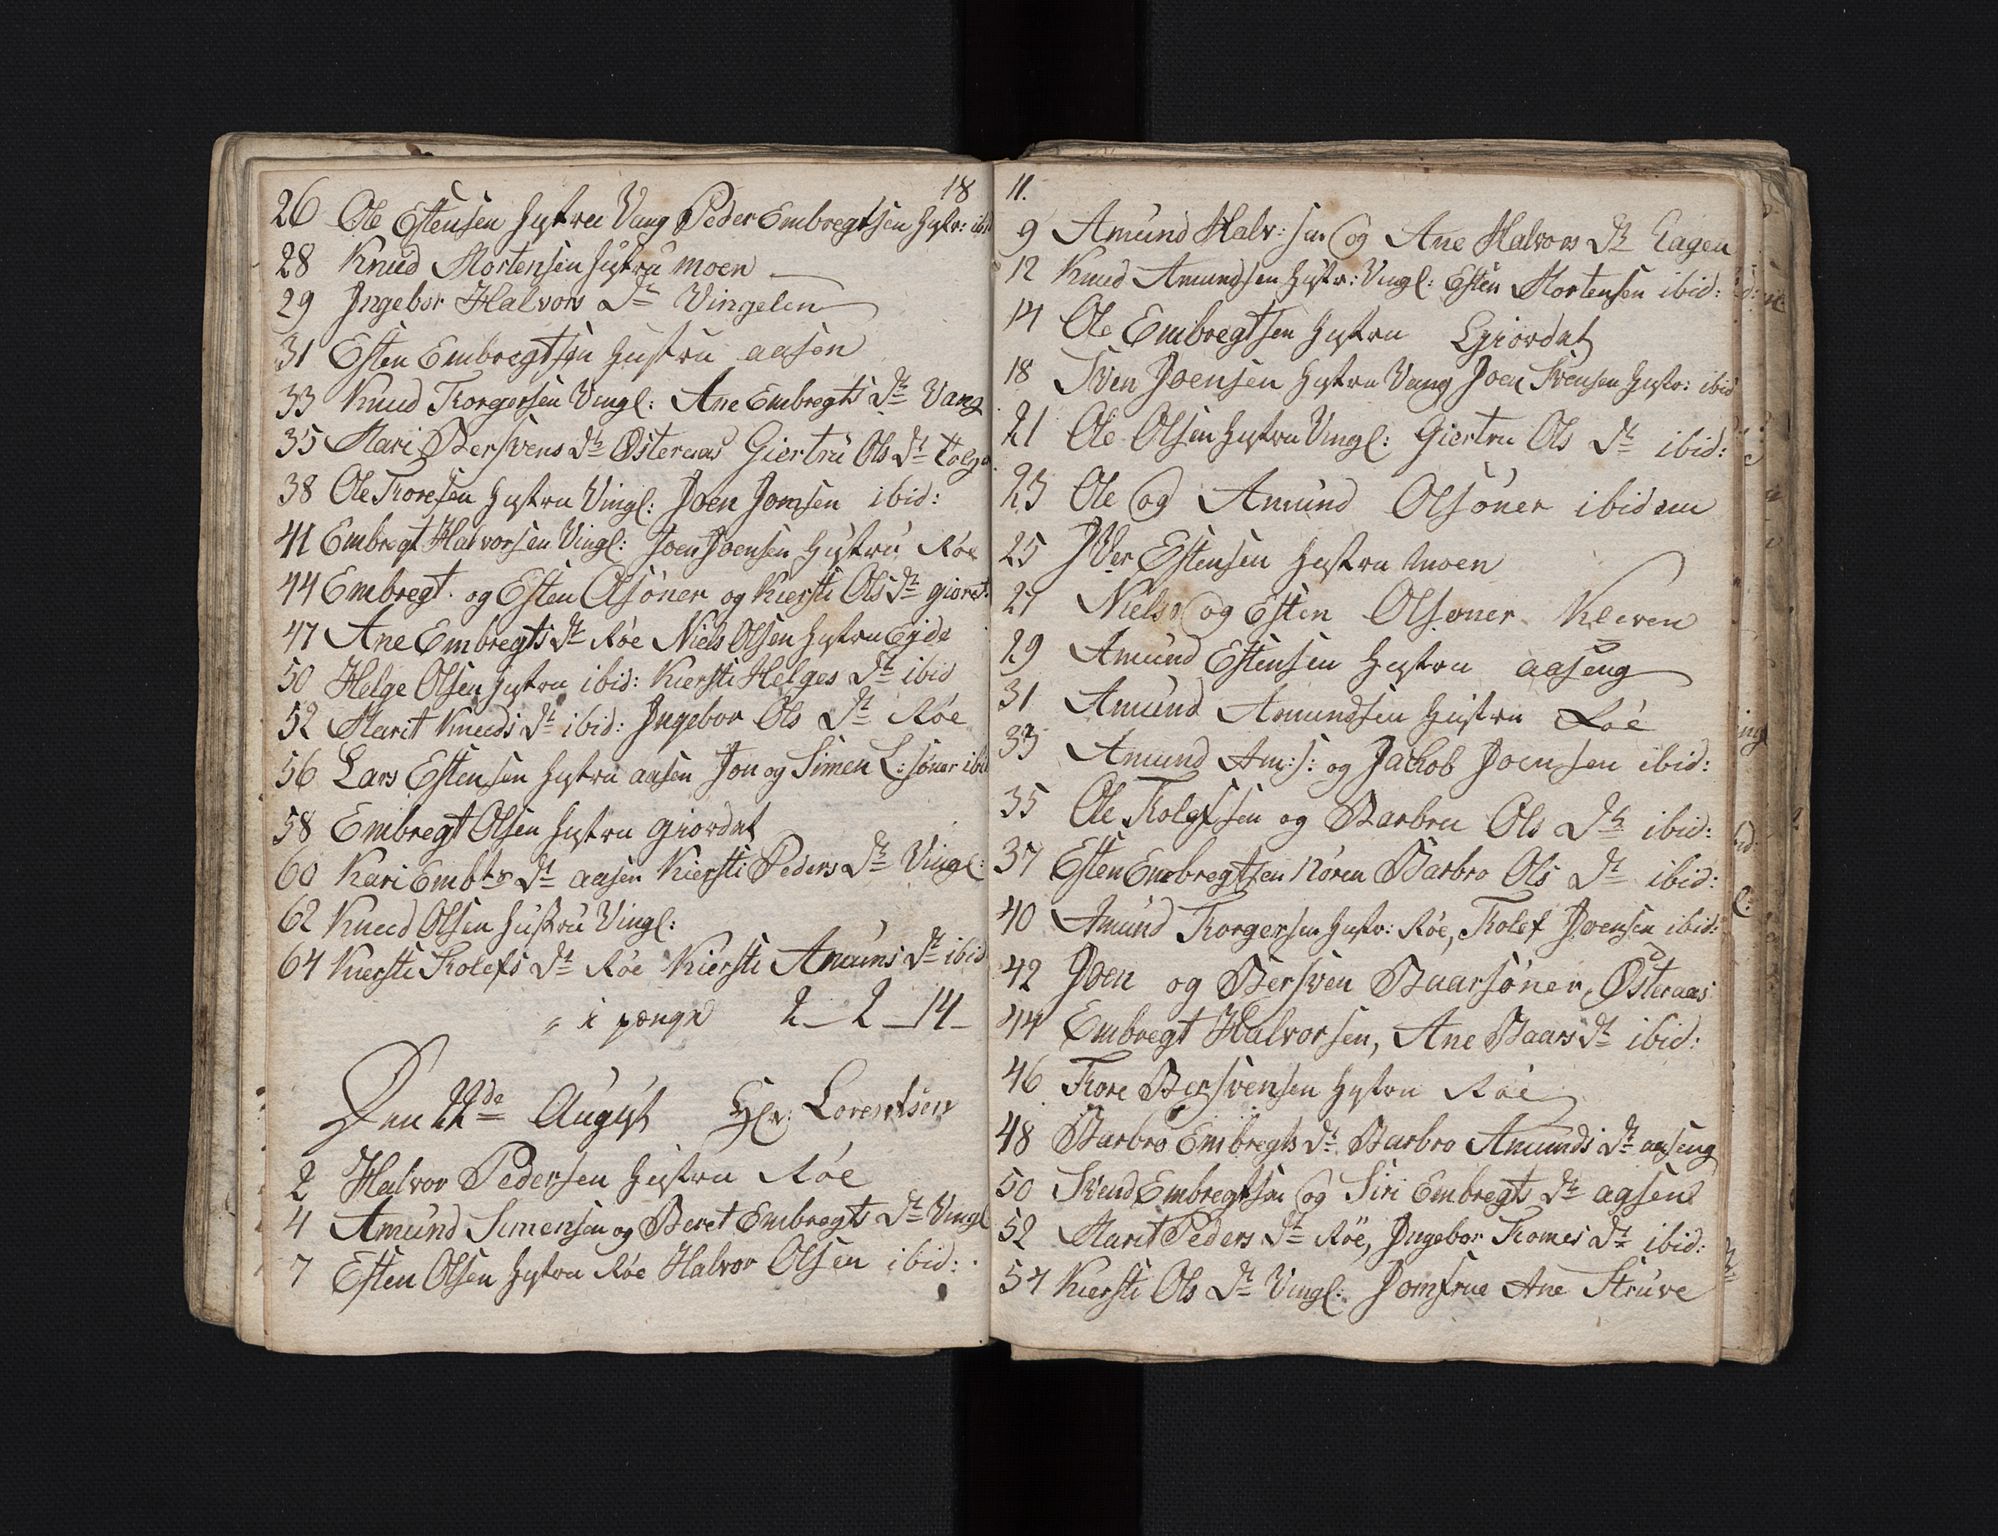 18
26 Ole Estensen hustru Vang Peder Embregtsen hustr: ibid
28 Knud Mortensen hustru moen
29 Ingebor Halvors Dtr Vingelen
31 Esten Embregtsen hustru aasen
33 Knud Torgersen Vingl: Ane Embregts Dtr Vang
35 Mari Bersvens Dtr Østeraas Giertru Ols Dtr Tolgen
38 Ole Toresen hustru Vingl: Joen Jonsen ibid:
41 Embregt Halvorsen Vingl: Joen Joensen hustru Røe
44 Embregt og Esten Olsøner og Kiersti Ols Dtr giordt:
47 Ane Embregts Dtr Røe Niels Olsen hustru Egde
50 Helge Olsen hustru ibid: Kiersti Helges Dtr ibid
52 Marit Knuds Dtr ibid: Ingebor Ols Dtr Røe
56 Lars Estensen hustru aasen Jon og Simen L: søner ibid
58 Embregt Olsen hustru giordet
60 Kari Embtr Dtr aasen Kiersti Peders Dtr Vingl:
62 Knud Olsen hustru Vingl:
64 Kiersti Tolefs Dtr Røe Kiersti Amuns Dtr ibid
i penge 2 _ 2 _ 14 _
Den 22de August Hr: Lorentsen
2 Halvor Pedersen hustru Røe
4 Amund Simensen og Beret Embregts Dtr Vingl
7 Esten Olsen hustru Røe Halvor Olsen ibid:
11.
9 Amund Halv: sen og Ane Halvors Dtr hagen
12 Knud Amundsen hustr: Vingl: Esten Mortensen ibid:
14 Ole Embregtsen hustru giordet
18 Sven Joensen hustru Vang Joen Svensen hustr: ibid
21 Ole Olsen hustru Vingl: Giertru Ols Dtr ibid:
23 Ole og Amund Olsøner ibidem
25 Iver Estensen hustru moen
27 Niels og Esten Olsøner Kleven
29 Amund Estensen hustru aaseng
31 Amund Amundsen hustru Røe
33 Amund Am:s: og Jacob Joensen ibid:
35 Ole Tolefsen og Barbru Ols Dtr ibid:
37 Esten Embregtsen Nøren Barbro Ols Dtr ibid:
40 Amund Torgersen hustr: Røe, Tolef Joensen ibid:
42 Joen og Bersven Baarsøner, Østeraas
44 Embregt Halvorsen, Ane Baars Dtr ibid:
46 Tore Bersvensen hustru Røe
48 Barbro Embregts Dtr Barbro Amunds Dtr aaseng
50 Svend Embregtsen og Siri Embregts Dtr aasen
52 Marit Peders Dtr Røe, Ingebor Tomes Dtr ibid:
54 Kiersti Ols Dtr Vingl: Jomfrue Ane Struve